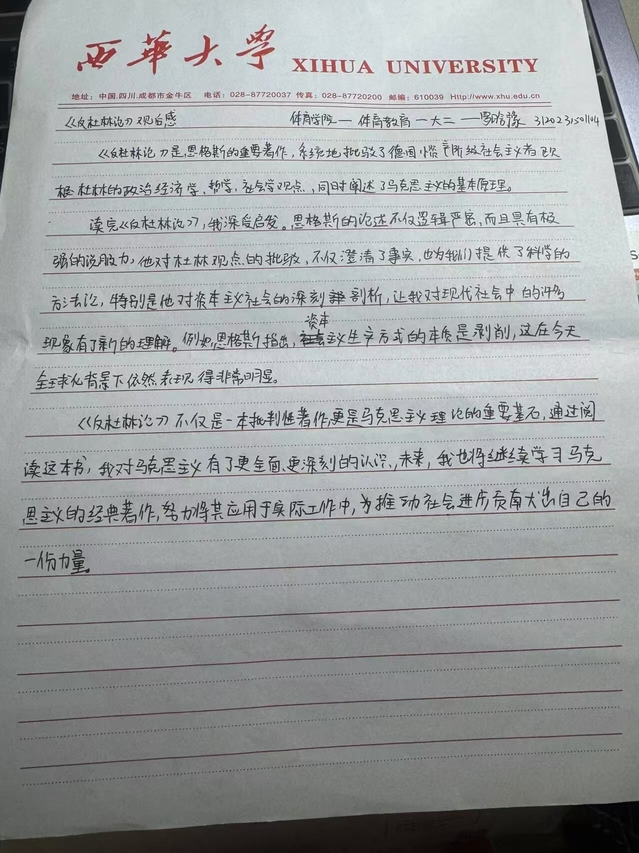 西华大学 XIHUA UNIVERSITY
地址：中国.四川.成都市金牛区 电话：028-87720037 传真：028-87720200 邮编：610039 Http://www.xhu.edu.cn
《反杜林论》观后感 体育学院—体育教育—大二— 3120231501104
《反杜林论》是恩格斯的重要著作，系统地批驳了德国小资产阶级社会主义者欧
根·杜林的政治经济学、哲学、社会学观点，同时阐述了马克思主义的基本原理。
读完《反杜林论》，我深受启发。恩格斯的论述不仅逻辑严密，而且具有极
强的说服力，他对杜林观点的批驳，不仅澄清了事实，也为我们提供了科学的
方法论，特别是他对资本主义社会的深刻剖析，让我对现代社会中的许多
现象有了新的理解。例如，恩格斯指出，资本主义生产方式的本质是剥削，这在今天
全球化背景下依然表现得非常明显。
《反杜林论》不仅是一本批判性著作，更是马克思主义理论的重要基石，通过阅
读这本书，我对马克思主义有了更全面、更深刻的认识，未来，我也将继续学习马克
思主义的经典著作，努力将其应用于实际工作中，为推动社会进步贡献出自己的
一份力量。